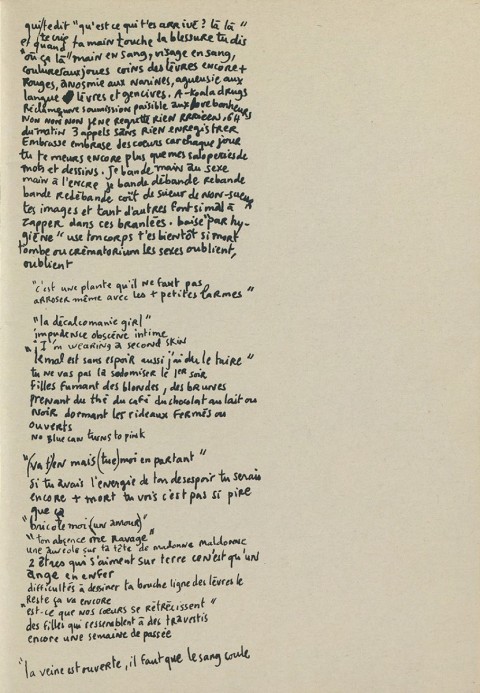 qui te dit "qu'est ce qui t'es arrivé? là là"
je crie
et quand ta main touche la blessure tu dis
"où ça là" main en sang, visage en sang,
coulures aux joues coins des lèvres encore +
rouges, anosmie aux narines, agueusie aux
langue lèvres et gencives. A-Koala drugs
réclame une soumission paisible aux bonheurs
NON NON NON je ne regrette RIEN RRRIEEN. 6H
du matin 3 appels sans rien enregistrer
Embrasse embrase des coeurs car chaque jour
tu te meurs encore plus que mes saloperies de
mots et dessins. Je bande main au sexe
main à l'encre je bande débande rebande
bande redébande coït de sueur de non-sueur
tes images et tant d'autres font si mal à
zapper dans ces branlées. baise "par hy-
giène" use ton corps t'es bientôt si mort
tombe ou crématorium les sexes oublient,
oublient
"c'est une plante qu'il ne faut pas
arroser même avec les + petites larmes"
"la décalcomanie girl"
impudence obscène intime
"I'm wearing a second skin
"le mal est sans espoir aussi j'ai dû le taire"
tu ne vas pas la sodomiser le 1er soir
filles fumant des blondes, des brunes
prenant du thé du café du chocolat au lait ou
noir dormant les rideaux fermés ou
ouverts
No Blue can turns to pink
"(va t)en mais (tue) moi en partant"
si tu avais l'energie de ton desespoir tu serais
encore + mort tu vois c'est pas si pire
que ça
"bricole moi (un amour)"
"ton absence me ravage"
une auréole sur ta tête de madonne maldonne
2 êtres qui s'aiment sur terre ce n'est qu'un
ange en enfer
difficultés à dessiner ta bouche ligne des lèvres le
reste ça va encore
"est-ce que nos coeurs se rétrécissent"
des filles qui ressemblent à des travestis
encore une semaine de passée
"la veine est ouverte, il faut que le sang coule